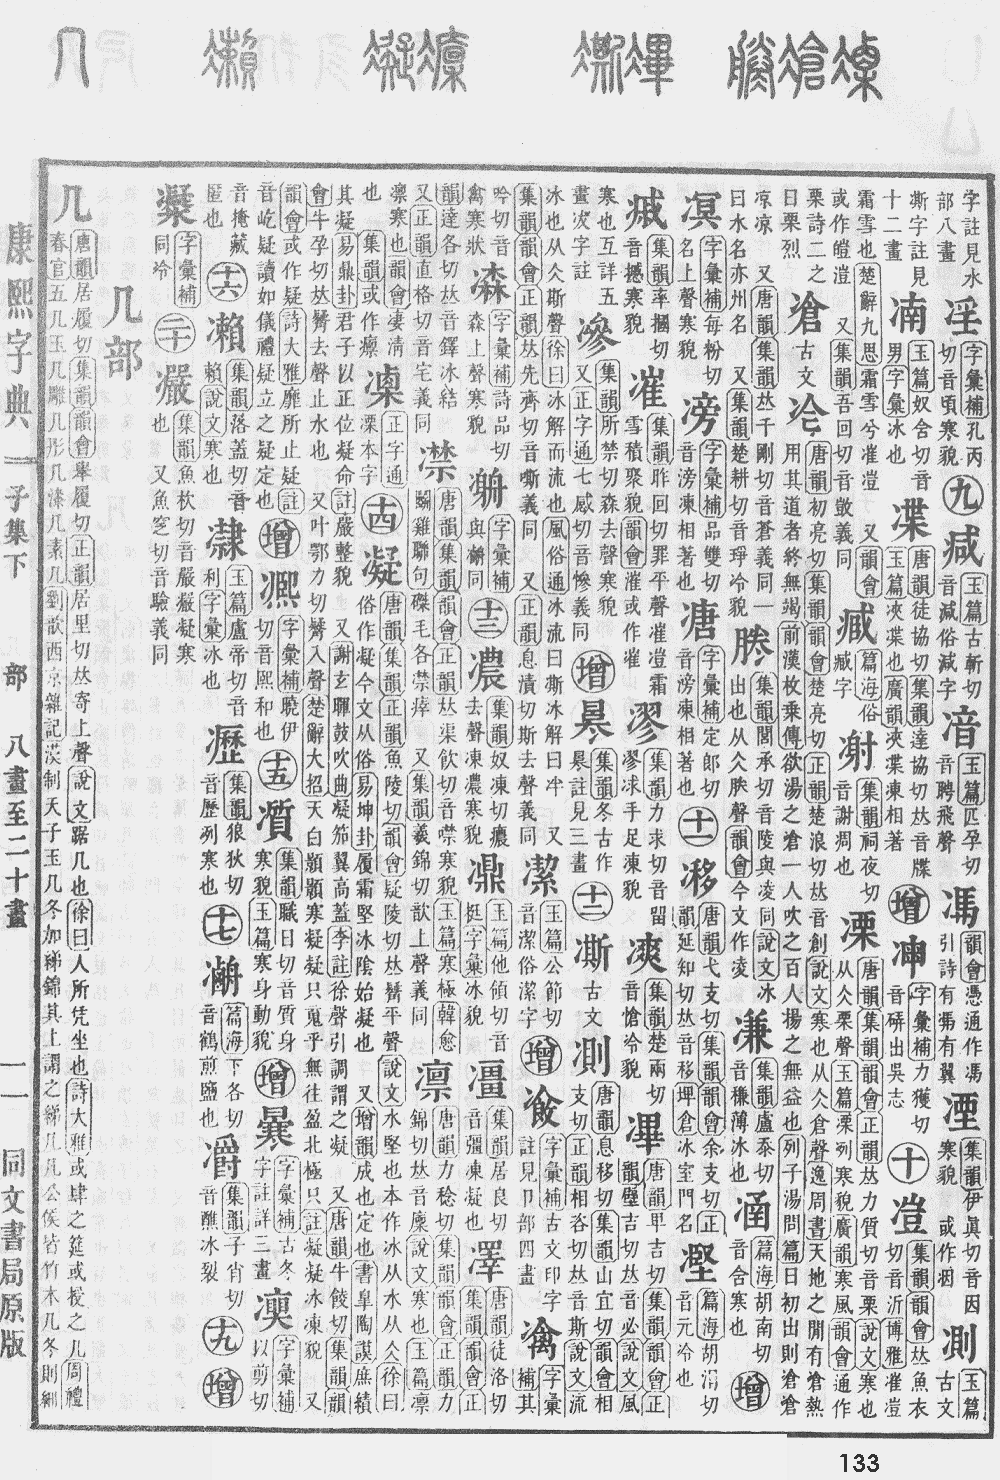 字註見水部八畫 淫 字彙補孔丙切音頃寒貌 九 减 玉篇古斬切音減俗減字 湆 玉篇匹孕切音聘飛聲 馮 韻會憑通作馮引詩有馮有翼 湮 集韻伊眞切音因寒貌 測 玉篇古文
澌字註見十二畫 湳 玉篇奴含切音男字彙冰也 渫 唐韻徒協切集韻達協切𠀤音牒玉篇浹渫也廣韻浹渫凍相著 增 字彙補力獲切 出吳志 十 凒 集韻韻會𠀤魚衣切音沂博雅凗凒
霜雪也楚辭九思霜雪兮凗凒 又韻會或作皚溰 又集韻吾回切音敳義同 篇海俗臧字 集韻祠夜切音謝凋也 凓 唐韻集韻韻會正韻𠀤力質切音栗說文寒也从仌栗聲玉篇凓冽寒貌廣韻寒風韻會通作
栗詩二之日栗烈 凔 古文 唐韻初亮切集韻韻會楚亮切正韻楚浪切𠀤音創說文寒也从仌倉聲逸周書天地之閒有凔熱用其道者終無竭前漢枚乘傳欲湯之凔一人吹之百人揚之無益也列子湯問篇日初出則凔凔
凉凉 又唐韻集韻𠀤千剛切音蒼義同 一曰水名亦州名 又集韻楚耕切音琤冷貌 集韻閭承切音陵與凌同說文冰出也从仌朕聲韻會今文作凌 溓 集韻盧忝切 薄冰也 涵 篇海胡南切音含寒也 增
凕 字彙補每粉切名上聲寒貌 滂 字彙補品雙切音滂凍相著也 溏 字彙補定郎切音滂凍相著也 十一 唐韻弋支切集韻韻會余支切正韻延知切𠀤音移 冰室門名 篇海胡涓切音元冷也
集韻率摑切音撼寒貌 凗 集韻昨回切罪平聲凗凒霜雪積聚貌韻會漼或作凗 集韻力求切音留 手足凍貌 集韻楚兩切音愴冷貌 滭 唐韻 吉切集韻韻會正韻壁吉切𠀤音必說文風
寒也互詳五畫 字註 滲 集韻所禁切森去聲寒貌 又正字通七感切音慘義同 增 集韻冬古作 註見三畫 十二 凘 古文 唐韻息移切集韻山宜切韻會相支切正韻相咨切𠀤音斯說文流
冰也从仌斯聲徐曰冰解而流也風俗通冰流曰凘冰解曰泮 又集韻韻會正韻𠀤先齊切音嘶義同 又正韻息漬切斯去聲義同 潔 玉篇公節切音潔俗潔字 增 字彙補古文印字註見卩部四畫 字彙補其
吟切音禽寒狀 字彙補詩品切森上聲寒貌 字彙補與 同 十三 濃 集韻奴凍切癑去聲凍濃寒貌 玉篇他頂切音挺字彙冰貌 集韻居良切音彊凍凝也 澤 唐韻徒洛切集韻韻會正
韻達各切𠀤音鐸冰結 又正韻直格切音宅義同 凚 唐韻集韻韻會𠀤渠飲切音噤寒貌玉篇寒極韓愈鬬雞聯句磔毛各凚痒 又集韻義錦切歆上聲義同 凛 唐韻力稔切集韻韻會正韻力錦切𠀤音廩說文寒也玉篇凛
凛寒也韻會凄淸也 集韻或作癛 凜 正字通凛本字 十四 凝 唐韻集韻正韻魚陵切韻會疑陵切𠀤𧢄平聲說文水堅也本作冰从水从仌徐曰俗作凝今文从俗易坤卦履霜堅冰陰始凝也 又增韻成也定也書臯陶謨庶績
其凝易鼎卦君子以正位凝命註嚴整貌 又謝玄暉鼓吹曲凝笳翼高蓋李註徐聲引謂之凝 又唐韻牛餕切集韻韻會牛孕切𠀤 去聲止水也 又叶鄂力切 入聲楚辭大招天白顥顥寒凝凝只䰟乎無往盈北極只註凝凝冰凍貌 又
韻會或作疑詩大雅靡所止疑註音屹疑讀如儀禮疑立之疑定也 增 凞 字彙補曉伊切音熙和也 十五 集韻職日切音質身寒貌玉篇寒身動貌 增 字彙補古冬字註詳三畫 字彙補以剪切
音掩藏匿也 十六 瀨 集韻落蓋切音賴說文寒也 隸 玉篇盧帝切音利字彙冰也 瀝 集韻狼狄切音歷冽寒也 十七 篇海下各切音鶴煎鹽也 集韻子肖切音醮冰裂 十九 增
字彙補同冷 二十 集韻魚杴切音嚴嚴凝寒也 又魚窆切音驗義同
几部
几 唐韻居履切集韻韻會舉履切正韻居里切𠀤寄上聲說文踞几也徐曰人所凭坐也詩大雅或肆之筵或授之几周禮春官五几玉几雕几彤几漆几素几劉歆西京雜記漢制天子玉几冬加綈錦其上謂之綈几凡公侯皆竹木几冬則細
康熙字典 子集下 部 八畫至二十畫 一一 同文書局原版
133